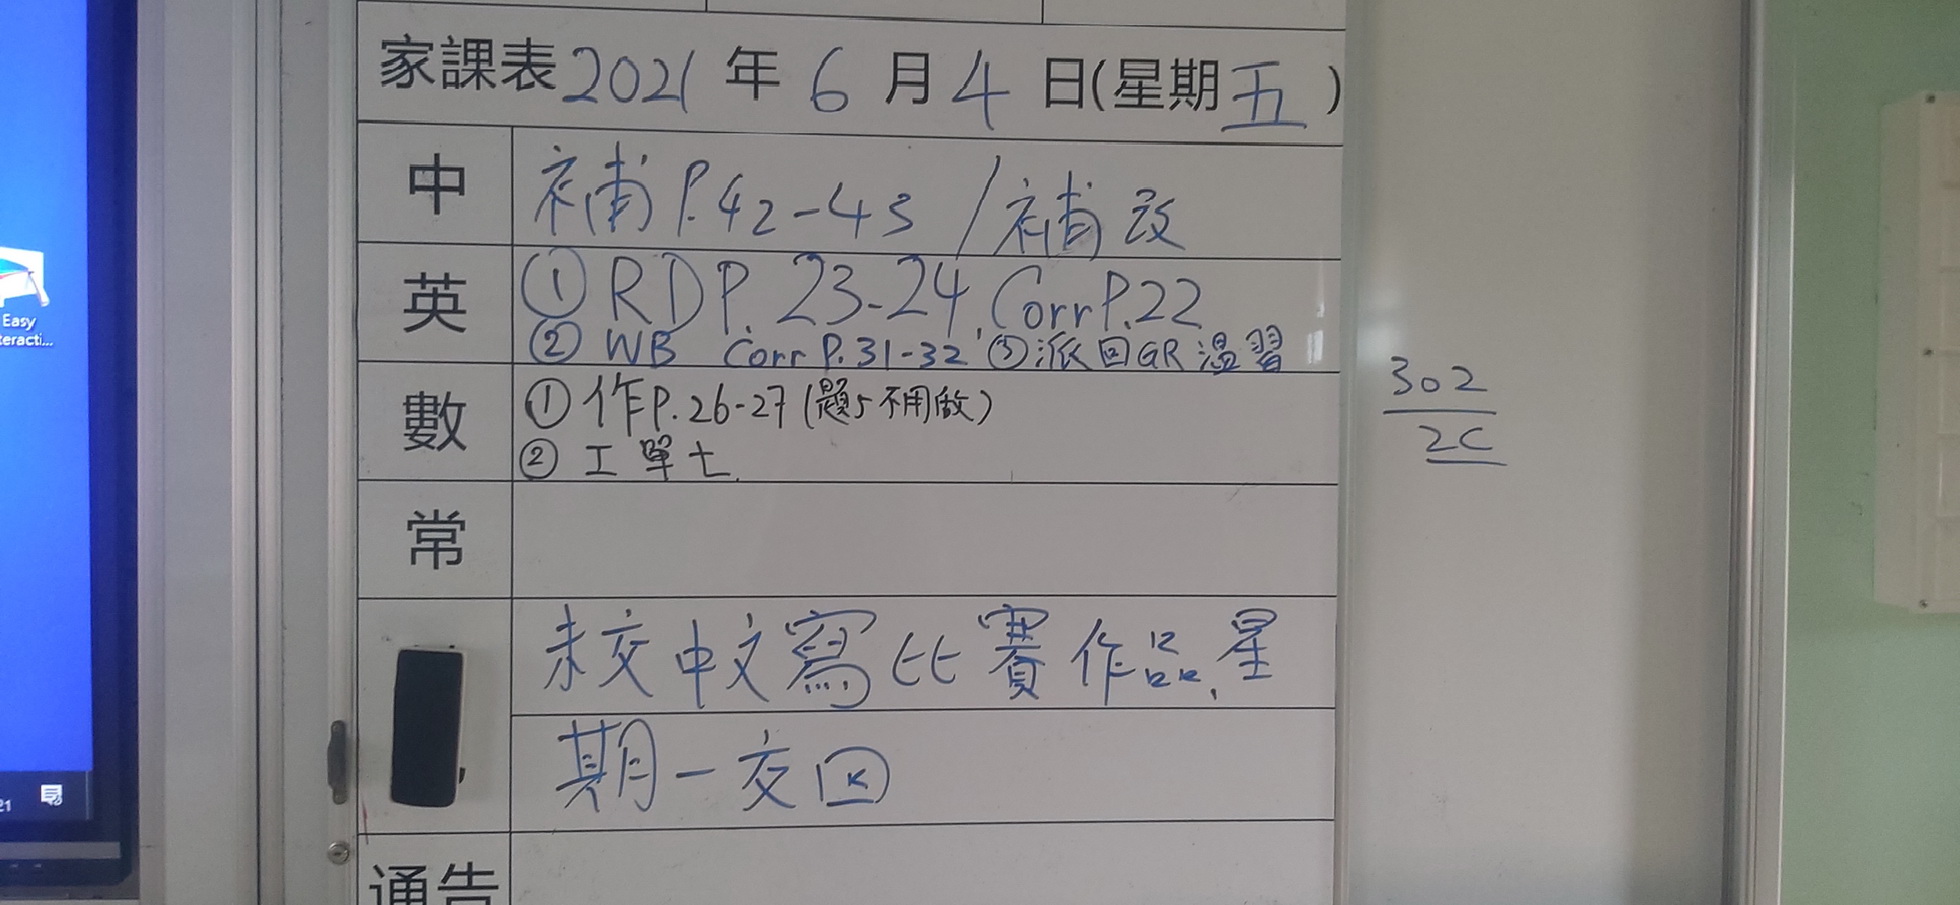 家課表2021年6月4日(星期五)
中
補P.42-43/補改
英
①RD P.23-24, Corr P.22
②WB Corr P.31-32 ③派回GR溫習
數
①作P.26-27(題5不用做)
②工單七
常
未交中文寫比賽作品,星
期一交回
通告
302
2C
Easy
teracti...
21